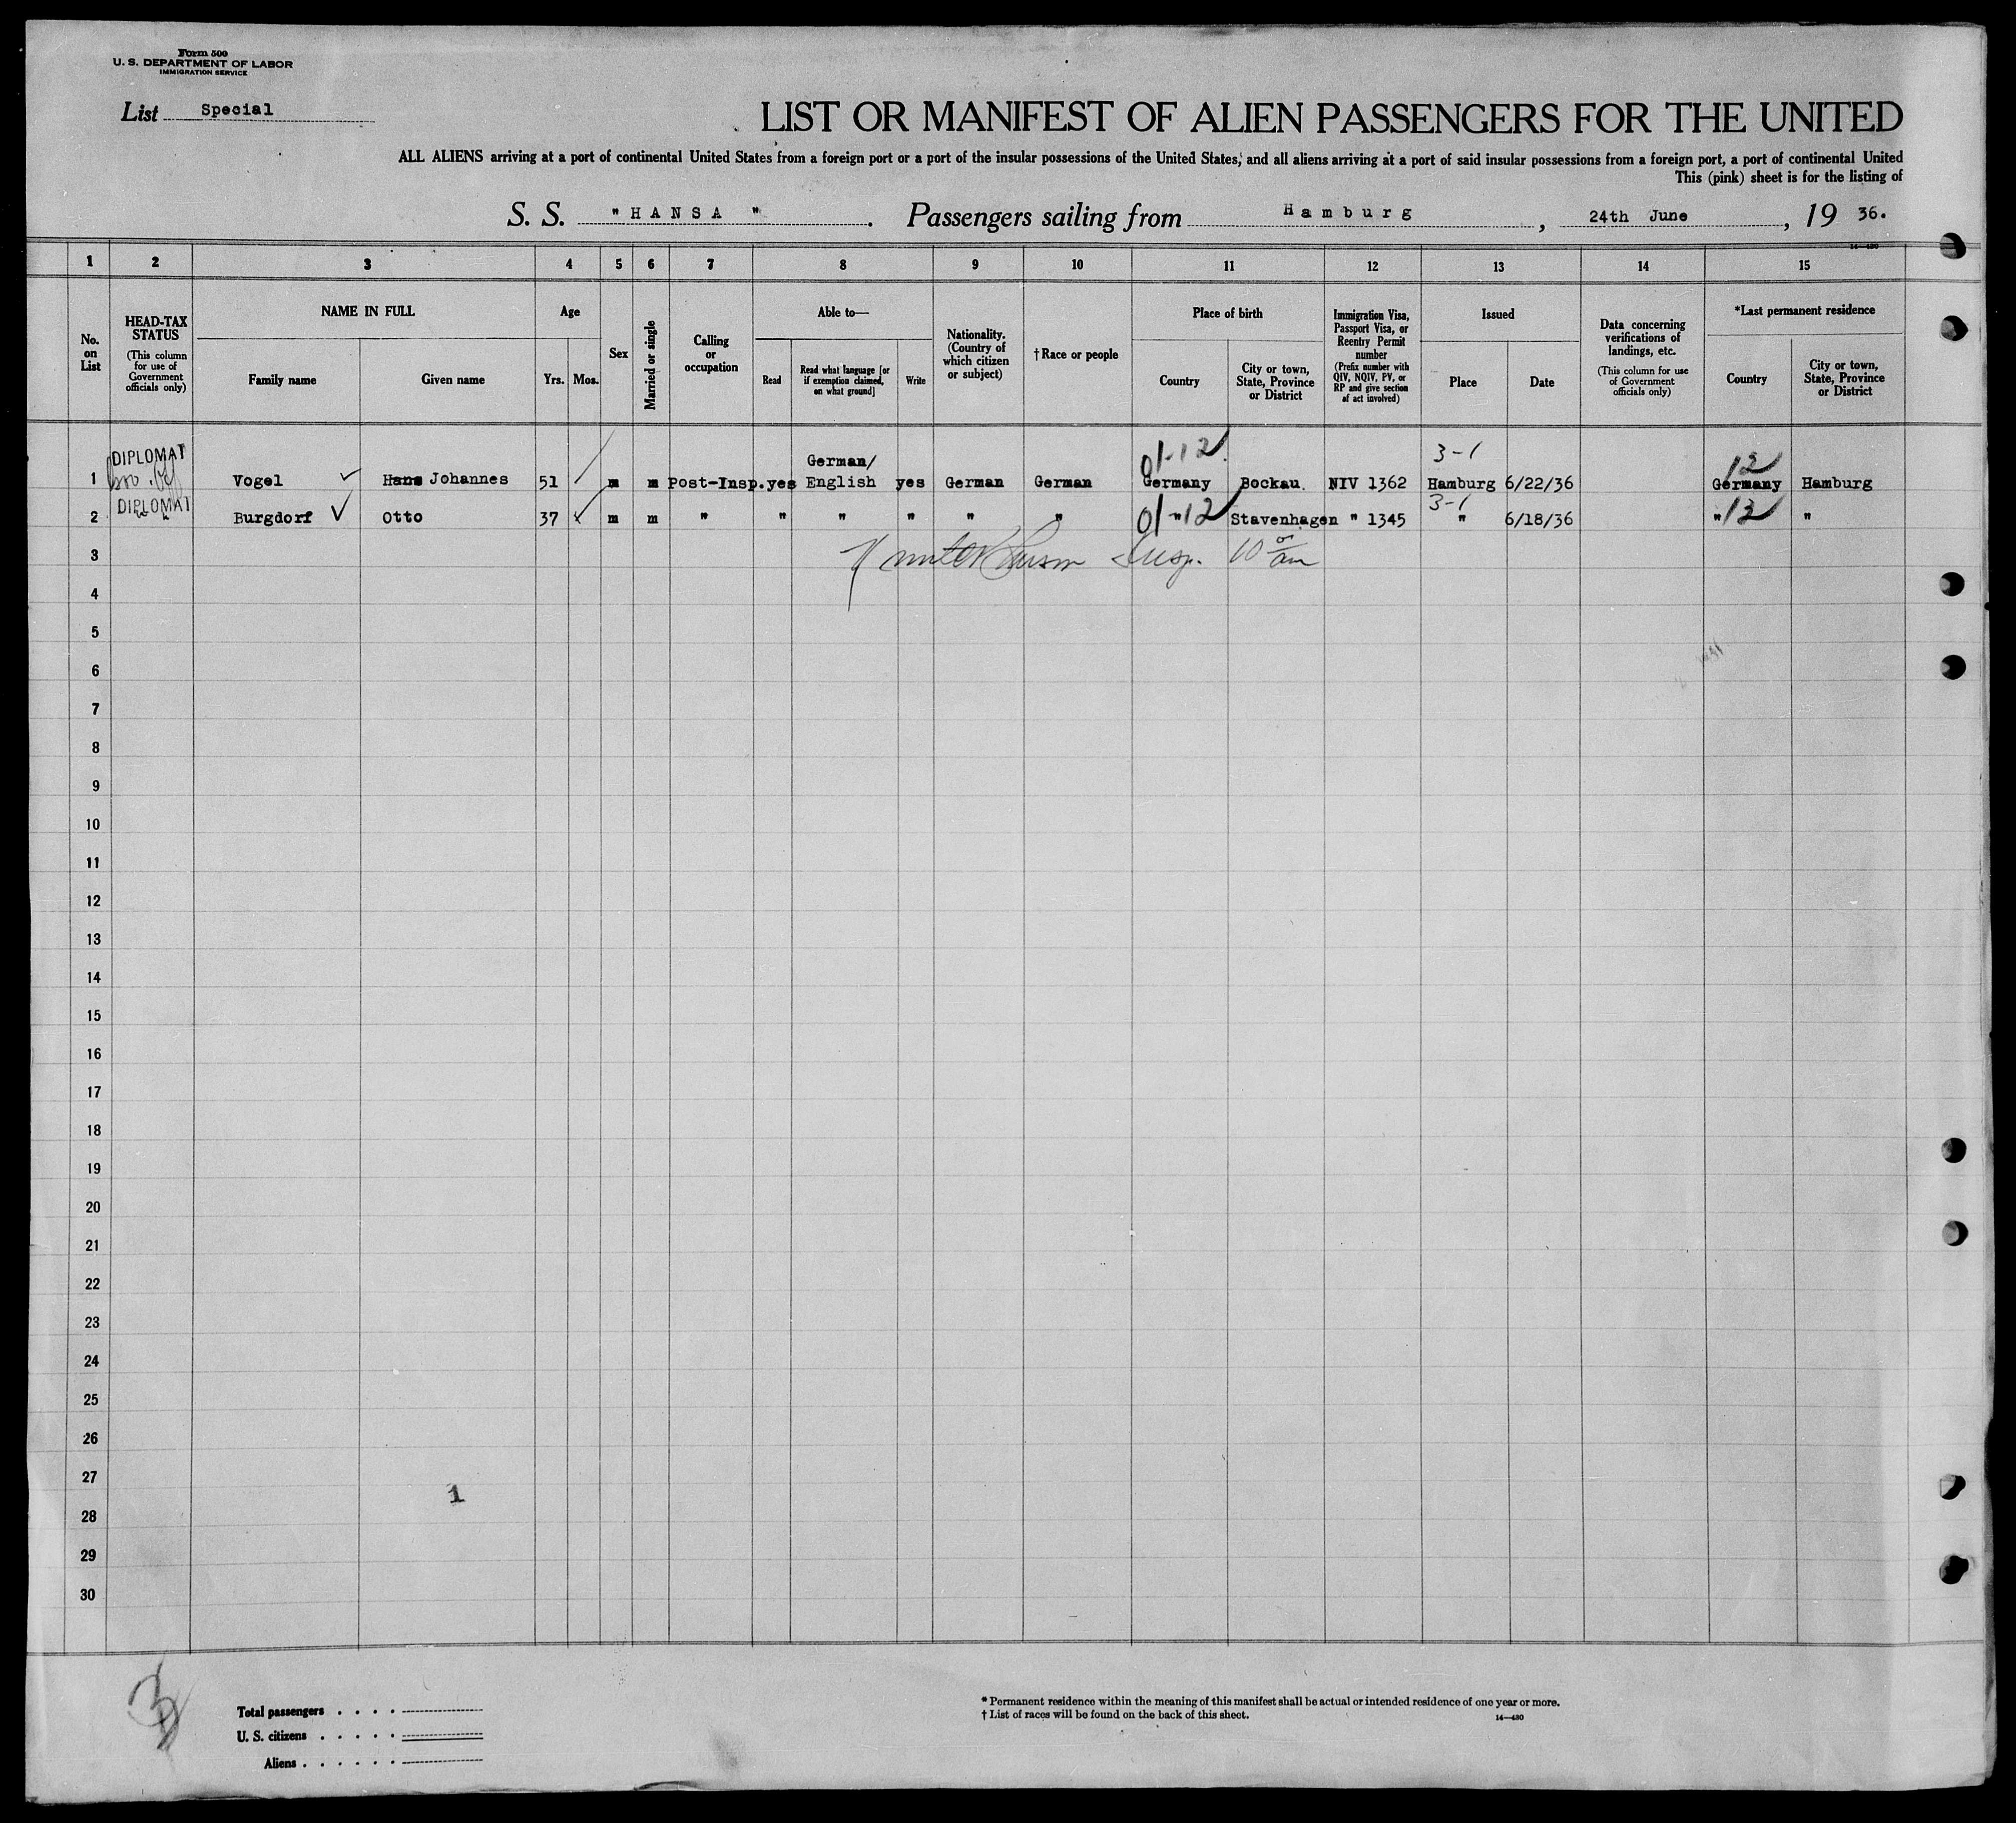 Form 500
U. S. DEPARTMENT OF LABOR
IMMIGRATION SERVICE
List Special
LIST OR MANIFEST OF ALIEN PASSENGERS FOR THE UNITED
ALL ALIENS arriving at a port of continental United States from a foreign port or a port of the insular possessions of the United States, and all aliens arriving at a port of said insular possessions from a foreign port, a port of continental United
This (pink) sheet is for the listing of
S. S. "HANSA". Passengers sailing from Hamburg, 24th June, 19 36.
14—430
1 2 3 4 5 6 7 8 9 10 11 12 13 14 15
No. on List
HEAD-TAX STATUS
(This column for use of Government officials only)
NAME IN FULL
Family name
Given name
Age
Yrs. Mos.
Sex
Married or single
Calling or occupation
Able to—
Read
Read what language [or if exemption claimed, on what ground]
Write
Nationality. (Country of which citizen or subject)
† Race or people
Place of birth
Country
City or town, State, Province or District
Immigration Visa, Passport Visa, or Reentry Permit number
(Prefix number with QIV, NQIV, PV, or RP and give section of act involved)
Issued
Place
Date
Data concerning verifications of landings, etc.
(This column for use of Government officials only)
*Last permanent residence
Country
City or town, State, Province or District
DIPLOMAT 01-12 3-1 12
German/
1 Vogel Hans Johannes 51 m m Post-Insp. yes English yes German German Germany Bockau. NIV 1362 Hamburg 6/22/36 Germany Hamburg
DIPLOMAT 01-12 3-1 12
2 Burgdorf Otto 37 m m " " " " " " " Stavenhagen " 1345 " 6/18/36 " "
3 Insp. 10 am
4
5
6
7
8
9
10
11
12
13
14
15
16
17
18
19
20
21
22
23
24
25
26
27
1
28
29
30
3
Total passengers . . . .
U. S. citizens . . . . .
Aliens . . . . . .
* Permanent residence within the meaning of this manifest shall be actual or intended residence of one year or more.
† List of races will be found on the back of this sheet.
14—430